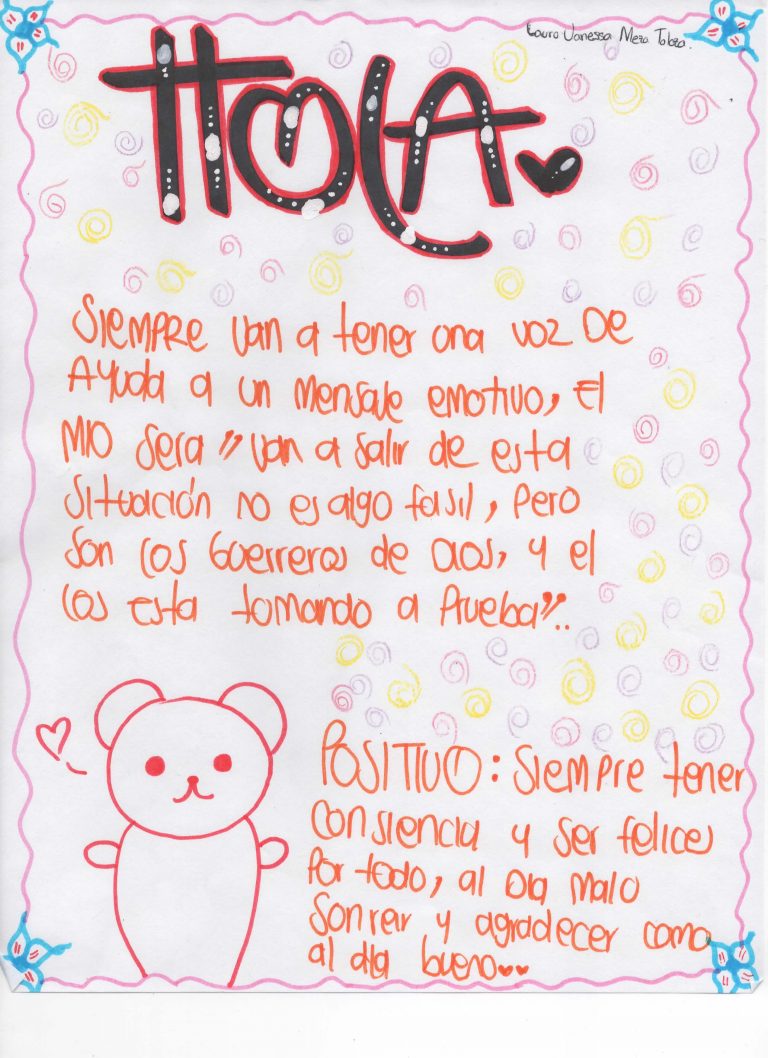 Laura Vanessa Meza
HOLA
SIEMPRE van a tener una voz De
Ayuda a un mensaje emotivo, El
MIO sera "van a salir de esta
Situación no es algo fasil, pero
son los Guerreros de Dios, y el
los esta tomando a Prueba"..
POSITIVO: Siempre tener
consiencia y ser felices
por todo, al Dia malo
sonreir y agradecer como
al dia bueno